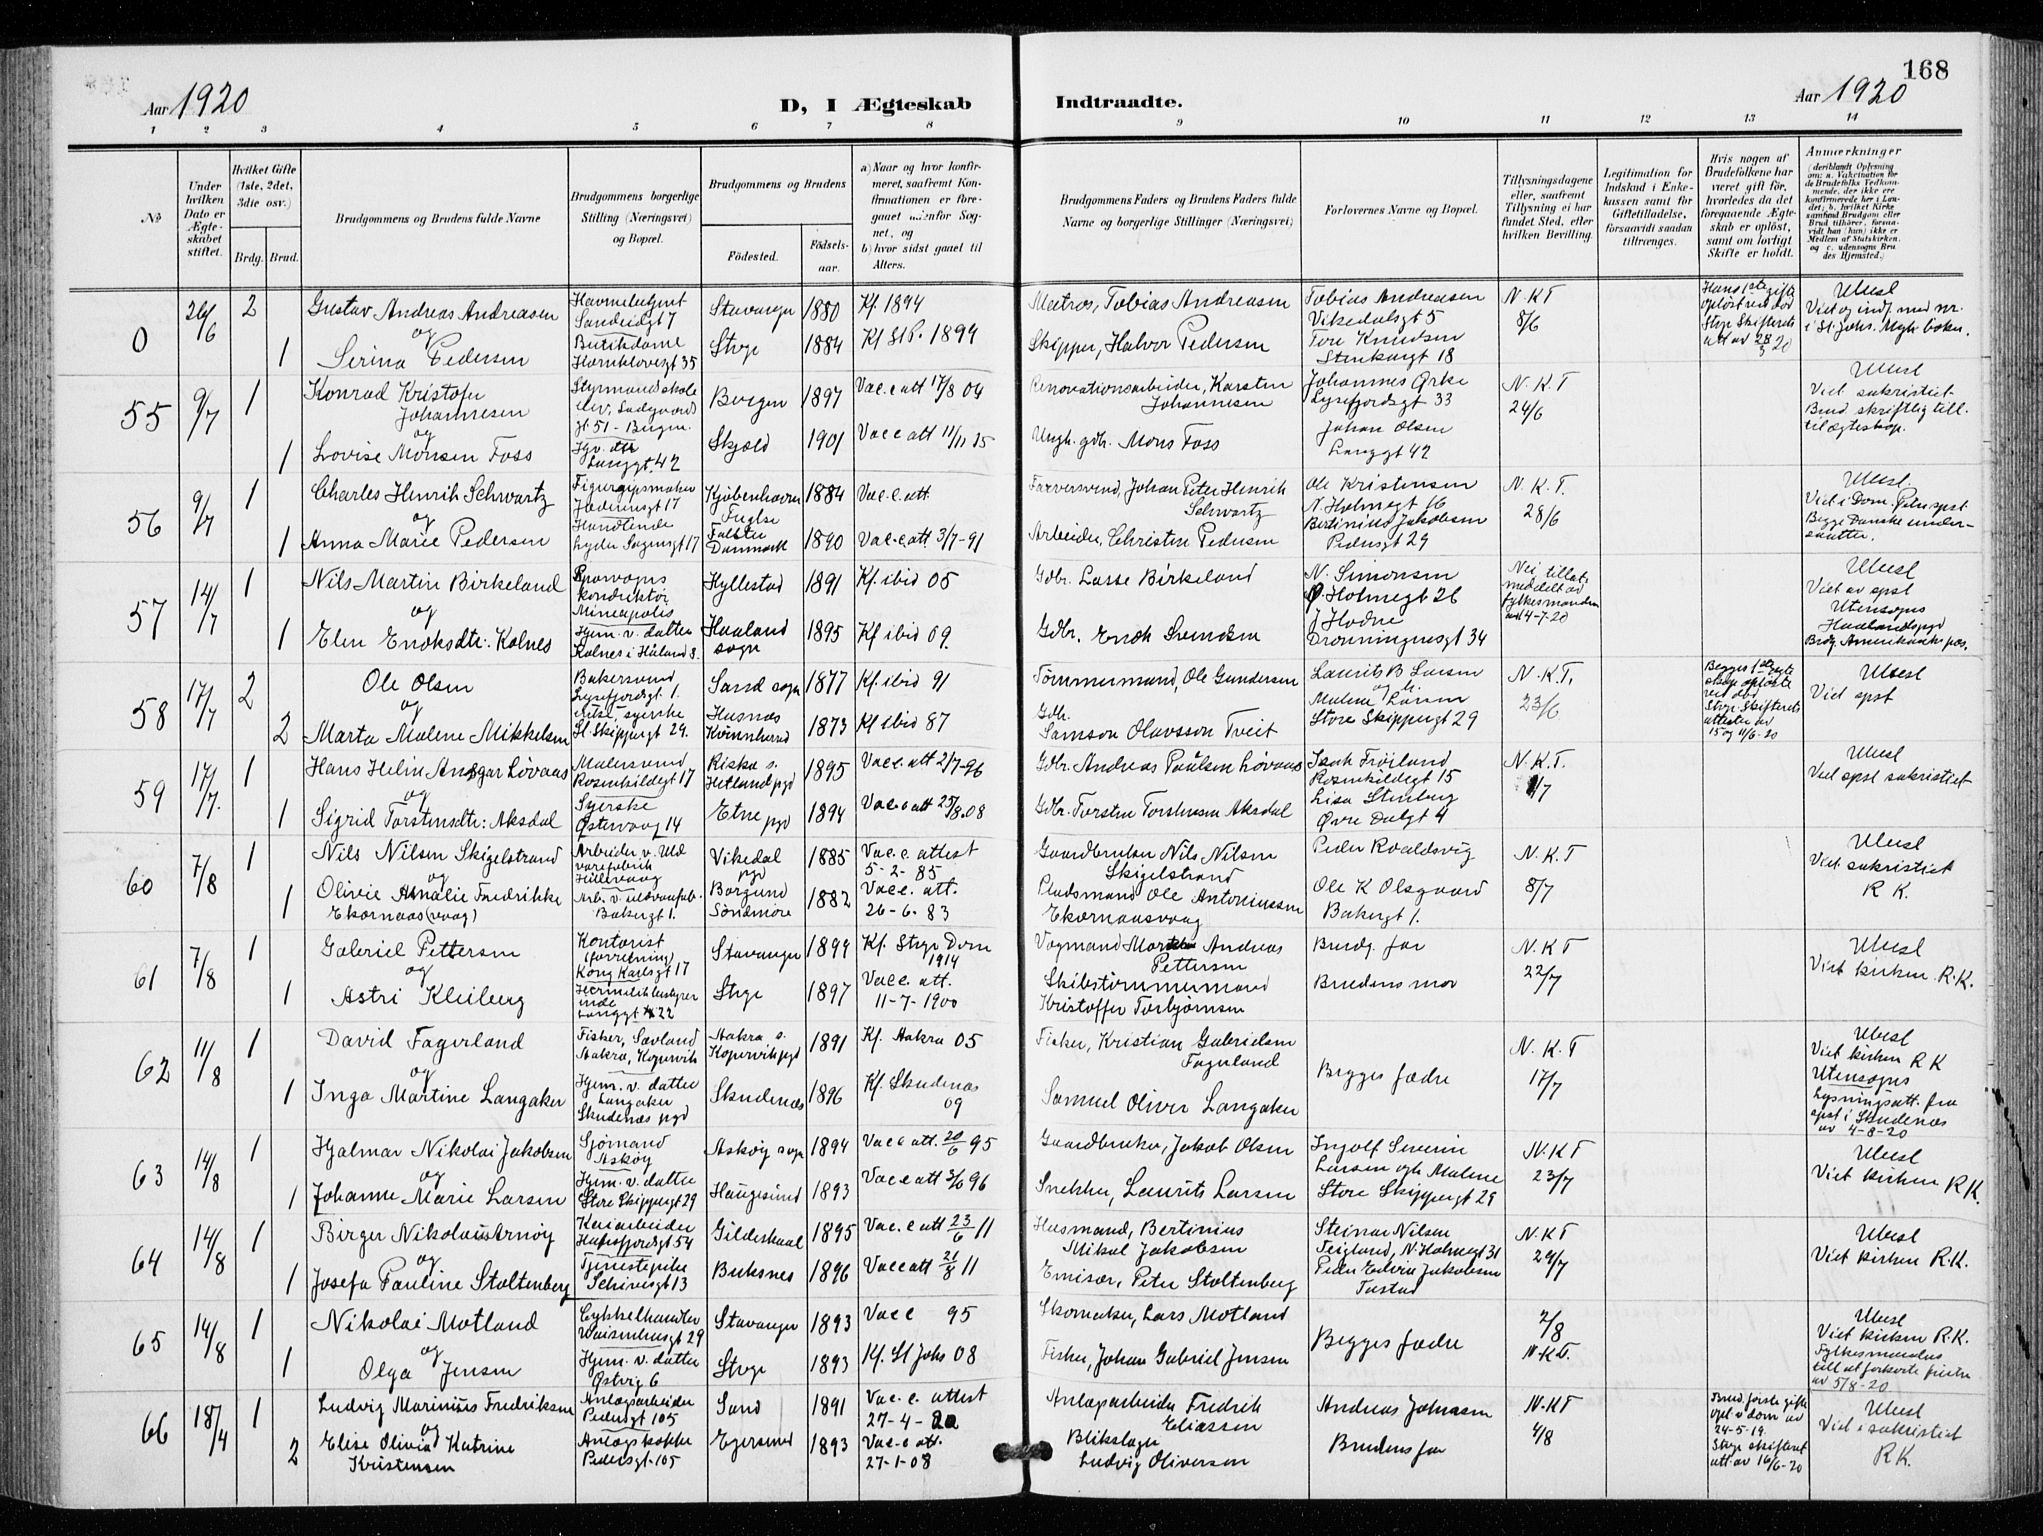 168
Aar 1920
D, I Ægteskab
Indtraadte.
Aar 1920
1 2 3 4 5 6 7 8 9 10 11 12 13 14
№
Under hvilken Dato er Ægteskabet stiftet.
Hvilket Gifte (1ste, 2det, 3die osv.)
Brdg. Brud.
Brudgommens og Brudens fulde Navne
Brudgommens borgerlige Stilling (Næringsvei) og Bopæl.
Brudgommens og Brudens
Födested.
Födselsaar.
a) Naar og hvor konfirmeret, saafremt Konfirmationen er foregaaet udenfor Sognet, og
b) hvor sidst gaaet til Alters.
Brudgommens Faders og Brudens Faders fulde Navne og borgerlige Stillinger (Næringsvei)
Forlovernes Navne og Bopæl.
Tillysningsdagene eller, saafremt Tillysning ei har fundet Sted, efter hvilken Bevilling.
Legitimation for Indskud i Enkekassen samt for Giftetilladelse, forsaavidt saadan tiltrænges.
Hvis nogen af Brudefolkene har været gift för, hvorledes da det foregaaende Ægteskab er oplöst, samt om lovligt Skifte er holdt.
Anmærkninger
0 26/6 2 Gustav Andreas Andreasen Sandeidgt 7 Stavanger 1880 Kf. 1894 Matros, Tobias Andreasen Tobias Andreasen Vikedalsgt 5 N.K.T 8/6
og
1 Serina Pedersen Butikdame Stvgr 1884 Kf St P. 1894 Skipper, Halvor Pedersen Tore Knudsen Stenkargt 18
55 9/7 1 Konrad Kristofer Johannesen Styrmandsskole elev Bergen 1897 Vac.e att 17/8 04 Renovationsarbeider, Karsten Johannesen Johannes Ørke Lysefjordsgt 33 N.K.T 24/6 Ubesl Viet sakristiet
og
1 Lovise Monsen Foss Langgt. 42 Skjold 1901 Vac e att 11/11 15 Ungk. gbr. Mons Foss Johan Olsen Langgt 42
56 9/7 1 Charles Henrik Schwartz Figurgipsmaker Kjøbenhavn 1884 Vac.e.att. Farversvend, Johan Peter Henrik Schwartz Ole Kristensen N. Holmegt 16 N.K.T. 28/6 Ubesl.
og
1 Anna Marie Pedersen Falster Danmark 1890 Vac.e.att. 3/7-91 Arbeider, Christen Pedersen Bertinius Jakobsen Pedersgt 29 Begge Danske undersaatter.
57 14/7 1 Nils Martin Birkeland Sporvogns konduktør Mineapolis Hyllestad 1891 Kf. ibid 05 Gdbr. Lasse Birkeland N. Simonsen Ø. Holmegt 26 Nei tillat. meddelt av fylkesmanden 4-7-20 Ubesl Viet av spst Utensogns
og
1 Elen Enoksdtr: Kolnes Hjem. v. datter Kolnes i Håland s. Haaland sogn 1895 Kf ibid 09. Gdbr. Enok Svendsen J Hodne Dronningensgt 34
58 17/7 2 Ole Olsen Bakersvend Lysefjordsgt 1. Sand sogn 1877 Kf. ibid 91 Tømmermand, Ole Gundersen Laurits B Larsen N.K.T. 23/6 Ubesl Viet spst
og
2 Marta Malene Mikkelsen syerske St. Skippergt 29. Husnæs Kvinnherred 1873 Kf ibid 87 Gdb. Samson Olavsson Tveit Malene Larsen Store Skippergt 29
59 17/7. 1 Hans Helin Ansgar Løvaas Malersvend Rosenkildegt 17 Riska s. Hetland pgd 1895 Vac e. att 2/7-96 Gdbr. Andreas Paulsen Løvaas Isak Frøiland Rosenkildegt 15 N.K.T. 1/7 Ubesl Viet spst sakristiet
og
1 Sigrid Torstensdtr: Aksdal Syerske Østervaag 14 Etne pgd 1894 Vac.e att 25/8.08 Gdbr. Torsten Torstensen Aksdal Lisa Stenberg Øvre Dalgt 4
60 7/8 1 Nils Nilsen Skigelstrand Arbeider v. Uldvarefabrik Hillevaag Vikedal pgd 1885 Vac. e. attest 5-2-85 Gaardbruker Nils Nilsen Skigelstrand Peder Roaldsvig N.K.T 8/7 Ubesl Viet sakristiet R K.
og
1 Olivie Amalie Fredrikke Ekornaas (vaag) Bakergt 1. Borgund Søndmøre 1882 Vac e. att. 26-6.83 Pladsmand Ole Antoniussen Ekornaasvaag Ole K Olsgaard Bakergt 1.
61 7/8 1 Gabriel Pettersen Kontorist (forretning) Kong Karlsgt 17 Stavanger 1899 Kf. Stvgr Dom 1914 Vognmand Andreas Pettersen Brudg. far N.K.T 22/7 Ubesl Viet kirken R.K.
og
1 Astri Kleiberg Langgt 22 Stvgr 1897 Vac e. att. 11-7-1900 Skibstømmermand Kristoffer Torbjørnsen Brudens mor
62 11/8 1 David Fagerland Fisker, Sævland Aakra, Kopervik Aakra s. Kopervik pgd 1891 Kf. Aakra 05 Fisker, Kristian Gabrielsen Fagerland Begges fædre N.K.T 17/7 Ubesl Viet kirken R K Utensogns
og
1 Inga Martine Langaker Hjem. v. datter Langaker Skudenæs pgd Skudenæs 1896 Kf. Skudenæs 09 Samuel Oliver Langaker Lysningsatt. fra spst i Skudenæs av 4-8-20
63 14/8 1 Hjalmar Nikolai Jakobsen Sjømand Askøy Askøy sogn 1894 Vac e att. 20/6 95 Gaardbruker, Jakob Olsen Ingolf Severin Larsen N.K.T 23/7 Ubesl Viet kirken R K.
og
1 Johanne Marie Larsen Hjem. v. datter Store Skippergt 29 Haugesund 1893 Vac e att 3/6 96 Snekker, Laurits Larsen Malene Store Skippergt 29
64 14/8 1 Birger Nikolaus Arnøy Kaiarbeider Hafrsfjordsgt 54 Gildeskaal 1895 Vac. e att 23/6 11 Husmand, Bertinius Mikal Jakobsen Steinar Nilsen Teigland, N. Holmegt 31 N.K.T 24/7 Ubesl Viet kirken R.K.
og
1 Josefa Pauline Stoltenberg Tjenestepike Buksnes 1896 Vac e att 21/8 11 Emisær, Peter Stoltenberg Peder Edvin Jakobsen Tastad
65 14/8 1 Nikolai Motland Cykkelhandler Waisenhusgt 29 Stavanger 1893 Vac e 95 Skomaker, Lars Motland Begges fædre 2/8 N.K.T. Ubesl Viet kirken R.K.
og
1 Olga Jensen Hjem. v. datter Østvig 6 Stvgr 1893 Kf. St Johs 08 Fisker, Johan Gabriel Jensen Fylkesmandens till at forkorte fristen av 5/8-20
66 18/4 1 Ludvig Marinius Fredriksen Anlægsarbeider Pedersgt 105 Sand 1891 Vac. e. attest 27-4- Anlægsarbeider Fredrik Eliassen Andreas Johnsen N.K.T 4/8 Brud. første gifte opl v dom av 24-5-19. Stvgr skifteret att av 16/6-20 Ubesl Viet i sakristiet R K.
og
2 Elise Olivia Katrine Kristensen Anlægskokke Pedersgt-105 Egersund 1893 Vac-e att. 27-1-08 Blikslager Ludvig Oliversen Brudens far